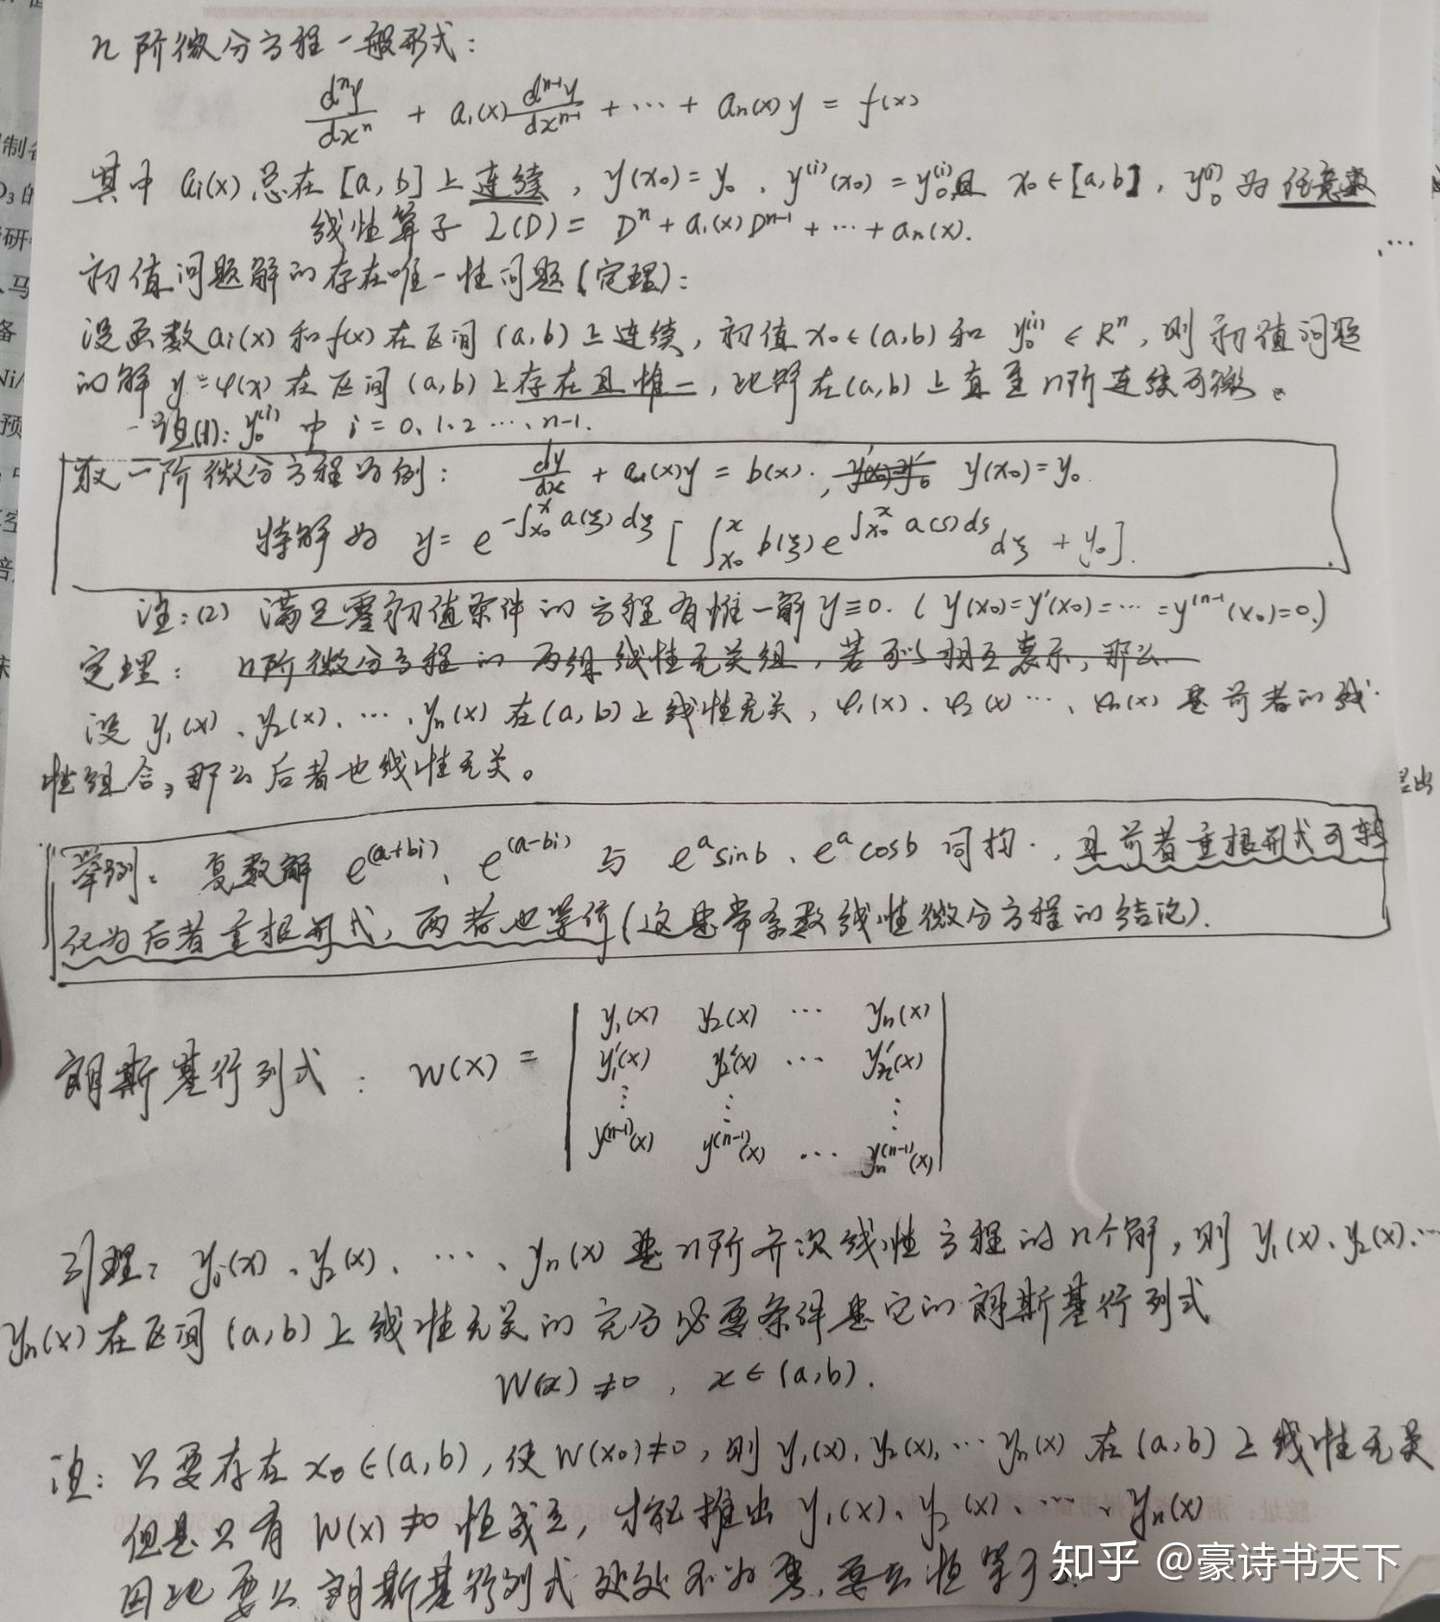 n 阶微分方程一般形式:
dⁿy/dxⁿ + a₁(x) dⁿ⁻¹y/dxⁿ⁻¹ + ⋯ + aₙ(x) y = f(x)
其中 aᵢ(x) 总在 [a, b] 上连续, y(x₀) = y₀, y⁽ⁱ⁾(x₀) = y₀⁽ⁱ⁾且 x₀ ∈ [a, b], y₀⁽ⁱ⁾ 为任意数
线性算子 L(D) = Dⁿ + a₁(x) Dⁿ⁻¹ + ⋯ + aₙ(x).
初值问题解的存在唯一性问题(定理):
设函数 aᵢ(x) 和 f(x) 在区间 (a, b) 上连续, 初值 x₀ ∈ (a, b) 和 y₀⁽ⁱ⁾ ∈ Rⁿ, 则初值问题
的解 y = φ(x) 在区间 (a, b) 上存在且惟一, 此解在 (a, b) 上直至 n 阶连续可微。
注(1): y₀⁽ⁱ⁾ 中 i = 0、1、2 ⋯, n-1.
取一阶微分方程为例: dy/dx + a(x)y = b(x)., y(x₀) = y₀
特解为 y = e^{-∫_{x₀}^{x} a(ξ) dξ} [ ∫_{x₀}^{x} b(ξ) e^{∫_{x₀}^{x} a(s) ds} dξ + y₀ ].
注:(2) 满足零初值条件的方程有惟一解 y ≡ 0. ( y(x₀) = y'(x₀) = ⋯ = y⁽ⁿ⁻¹(x₀) = 0.)
定理: n阶微分方程的两组线性无关组, 若可以相互表示, 那么
设 y₁(x)、y₂(x)、⋯、yₙ(x) 在 (a, b) 上线性无关, φ₁(x)、φ₂(x) ⋯、φₙ(x) 是前者的线
性组合, 那么后者也线性无关。
举例: 复数解 e^{(a+bi)}、e^{(a-bi)} 与 eᵃ sin b、eᵃ cos b 同构., 且前者重根形式可转
化为后者重根形式, 两者也等价 (这是常系数线性微分方程的结论).
朗斯基行列式: W(x) = | y₁(x) y₂(x) ⋯ yₙ(x)
y₁'(x) y₂'(x) ⋯ yₙ'(x)
⋮ ⋮ ⋮
y⁽ⁿ⁻¹⁾(x) y⁽ⁿ⁻¹⁾(x) ⋯ yₙ⁽ⁿ⁻¹⁾(x) |
引理: y₁(x)、y₂(x)、⋯、yₙ(x) 是 n 阶齐次线性方程的 n 个解, 则 y₁(x)、y₂(x)、⋯
yₙ(x) 在区间 (a, b) 上线性无关的充分必要条件是它的朗斯基行列式
W(x) ≠ 0, x ∈ (a, b).
注: 只要存在 x₀ ∈ (a, b), 使 W(x₀) ≠ 0, 则 y₁(x), y₂(x), ⋯ yₙ(x) 在 (a, b) 上线性无关
但是只有 W(x) ≠ 0 恒成立, 才能推出 y₁(x)、y₂(x)、⋯、yₙ(x)
因此要么朗斯基行列式处处不为零, 要么恒等于
知乎 @豪诗书天下